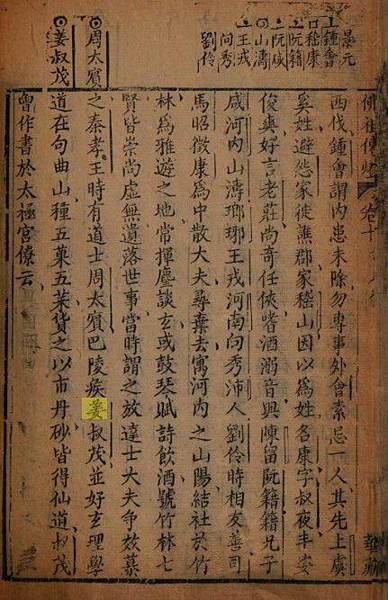 卷十
景元
鍾會
嵇康
阮籍
阮咸
山濤
王戎
向秀
劉伶
西伐鍾會謂內患未除勿專事外會素忌一人其先上虞
奚姓避怨家徙譙郡家嵇山因以為姓名康字叔夜丰姿
俊爽好言老莊尚奇任俠嗜酒溺音與陳留阮籍籍兄子
咸河內山濤瑯琊王戎河南向秀沛人劉伶時相友善司
馬昭徵康為中散大夫尋棄去寓河內之山陽結社於竹
林為雅遊之地常揮麈談玄或鼓琴賦詩飲酒號竹林七
賢皆崇尚虛無遺落世事當時謂之放達士大夫爭效慕
周太賓
之秦孝王時有道士周太賓巴陵矦姜叔茂並好玄理學
姜叔茂
道在句曲山種五菓五菜貨之以市丹砂皆得仙道叔茂
曾作書於太極宮僚云